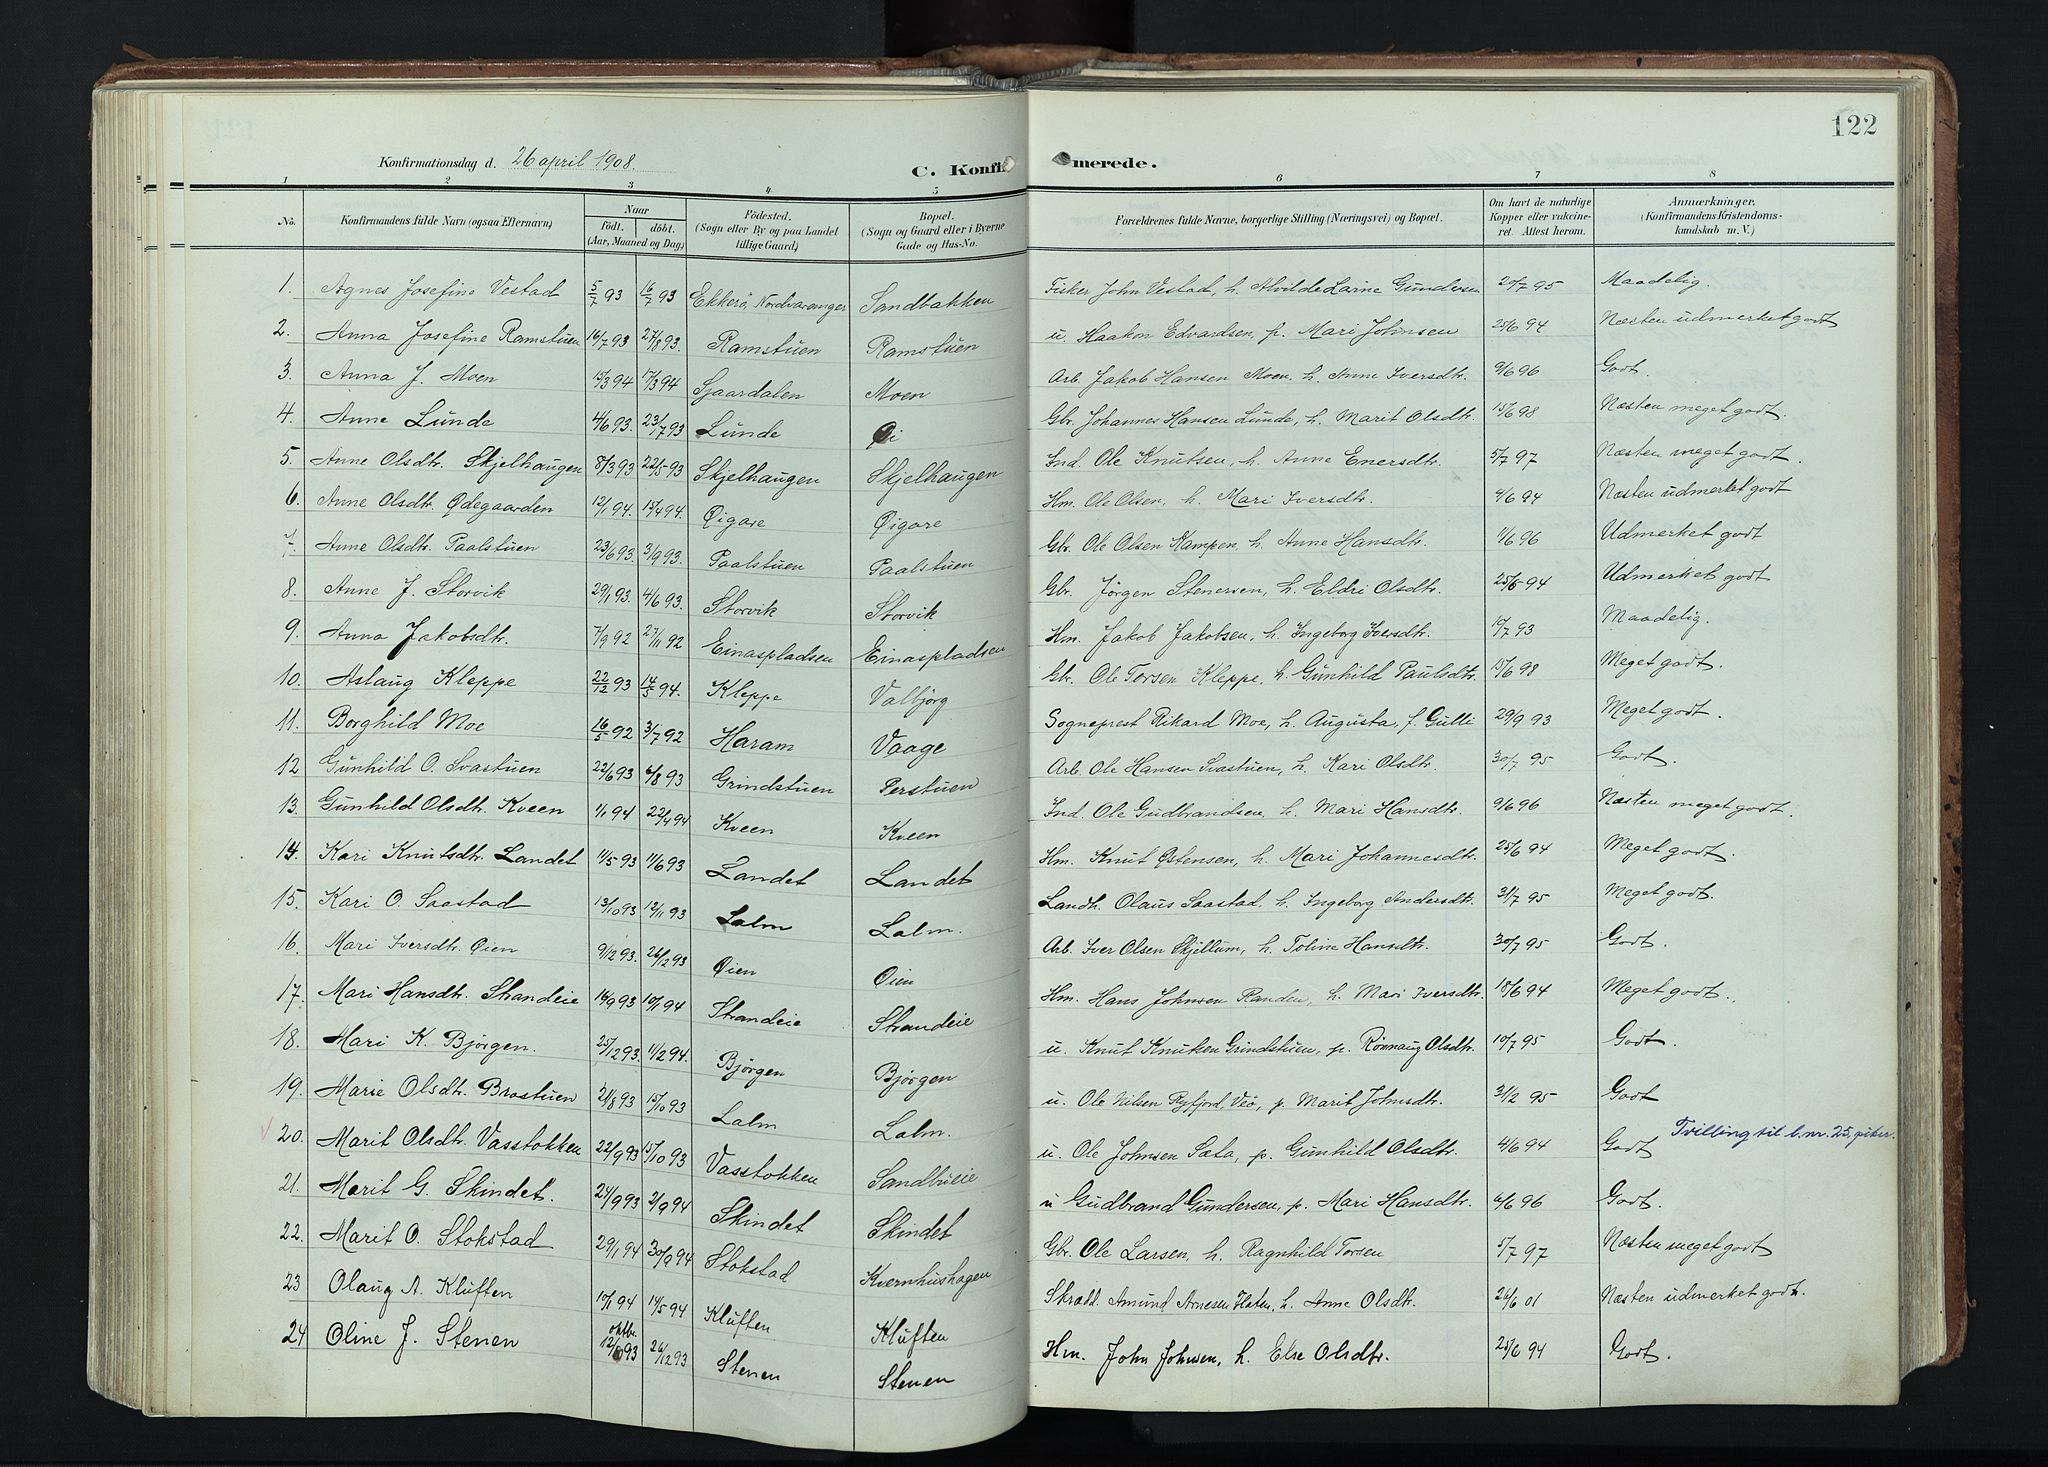 122
Konfirmationsdag d. 26 april 1908.
C. Konfir merede.
1 2 3 4 5 6 7 8
No. Konfirmandens fulde Navn (ogsaa Efternavn) Naar født. døbt. (Aar, Maaned og Dag) Fødested. (Sogn eller By og paa Landet tillige Gaard) Bopæl. (Sogn og Gaard eller i Byerne Gade og Hus-No. Forældrenes fulde Navne, borgerlige Stilling (Næringsvei) og Bopæl. Om havt de naturlige Kopper eller vakcineret. Attest herom. Anmærkninger. (Konfirmandens Kristendomskundskab m. V.)
1. Agnes Josefine Vestad 5/7 93 16/7 93 Ekkerö, Nordvaranger Sandbakken Fisker John Vestad, h. Alvilde Larine Gundersen 20/7 95 Maadelig.
2. Anna Josefine Ramstuen 16/7 93 27/8 93. Ramstuen Ramstuen u. Haakon Edvardsen, p. Mari Johnsen 25/6 94 Næsten udmerket godt
3. Anna J. Moen 15/3 94 17/3 94 Sjaardalen Moen Arb. Jakob Hansen Moen, h. Anne Iversdtr. 9/6 96 Godt.
4. Anne Lunde 4/6 93. 23/7 93 Lunde Øi Gbr. Johannes Hansen Lunde, h. Marit Olsdtr. 15/6 98 Næsten meget godt.
5. Anne Olsdtr. Skjelhaugen 8/3 93 22/5 93 Skjelhaugen Skjelhaugen Ind. Ole Knutsen, h. Anne Enersdtr. 5/7 97 Næsten meget godt.
6. Anne Olsdtr. Ødegaarden 12/1 94. 15/4 94. Øigare Øigare Hm. Ole Olsen, h. Mari Iversdtr. 4/6 94 Næsten udmerket godt
7. Anne Olsdtr. Paalstuen 23/6 93. 3/9 93. Paalstuen Paalstuen Gbr. Ole Olsen Kampen, h. Anne Hansdtr. 1/6 96 Udmerket godt
8. Anne J. Storvik 29/1 93. 4/6 93. Storvik Storvik Gbr. Jørgen Stenersen, h. Eldri Olsdtr. 25/6 94 Udmerket godt
9. Anna Jakobsdtr. 7/9 92 27/11 92 Einaspladsen Einaspladsen Hm. Jakob Jakobsen, h. Ingeborg Iversdtr. 19/7 93 Maadelig.
10. Aslaug Kleppe 22/12 93 14/5 94. Kleppe Valbjörg Gbr. Ole Torsen Kleppe, h. Gunhild Paulsdtr. 15/6 98 Meget godt.
11. Borghild Moe 16/5 92 3/7 92 Haram Vaage Sogneprest Rikard Moe, h. Augusta, f. Gulli 29/9 93 Meget godt.
12 Gunhild O. Svastuen 22/6 93 6/8 93 Grindstuen Perstuen Arb. Ole Hansen Svastuen, h. Kari Olsdtr. 30/7 95 Godt.
13. Gunhild Olsdtr. Kveen 1/1 94 22/4 94 Kveen Kveen Ind. Ole Gudbrandsen, h. Mari Hansdtr. 9/6 96 Næsten meget godt.
14. Kari Knutsdtr. Landet 11/5 93 11/6 93 Landet Landet Hm. Knut Østensen, h. Mari Johannesdtr. 25/6 94 Meget godt.
15. Kari O. Saastad 13/10 93 12/11 93 Lalm Lalm. Landh. Olaus Saastad, h. Ingeborg Andersdtr. 31/7 95 Meget godt.
16. Mari Iversdtr. Øien 9/12 93. 26/12 93 Øien Øien Arb. Iver Olsen Skjellum, h. Toline Hansdtr. 30/7 95 Godt.
17. Mari Hansdtr. Strandeie 16/9 93 10/1 94 Strandeie Strandeie Hm. Hans Johnsen Randen, h. Mari Iversdtr. 18/6 94 Meget godt.
18. Mari K. Bjørgen. 25/12 93. 11/2 94. Bjørgen Bjørgen u. Knut Knutsen Grindstuen, p. Rønnaug Olsdtr. 10/7 95 Godt.
19. Marie Olsdtr. Brostuen 21/8 93 15/10 93 Lalm Lalm. u. Ole Nilsen Ryfjord, Veø, p. Marit Johnsdtr. 31/2 95 Godt
20. Marit Olsdtr. Vasstokken 22/9 93 15/10 93 Vasstokken Sandbueie u. Ole Johnsen Sæta, p. Gunhild Olsdtr. 4/6 94 Godt Tvilling til l.nr. 25, piker.
21. Marit G. Skindet. 24/9 93 2/9 94 Skindet Skindet u Gudbrand Gundersen, p. Mari Hansdtr. 4/6 96 Godt.
22. Marit O. Stokstad 29/1 94 30/9 94 Stokstad Kvernhushagen Gbr. Ole Larsen, h. Ragnhild Torsen 5/7 97 Næsten meget godt
23 Olaug A. Kluften 10/1 94 14/5 94 Kluften Kluften Skradd. Amund Arnesen Flaten, h. Anne Olsdtr. 26/6 01 Næsten udmerket godt.
24 Oline J. Stenen oktbr. 12/10 93 26/12 93 Stenen Stenen Hm. John Johnsen, h. Else Olsdtr. 25/6 94 Godt.